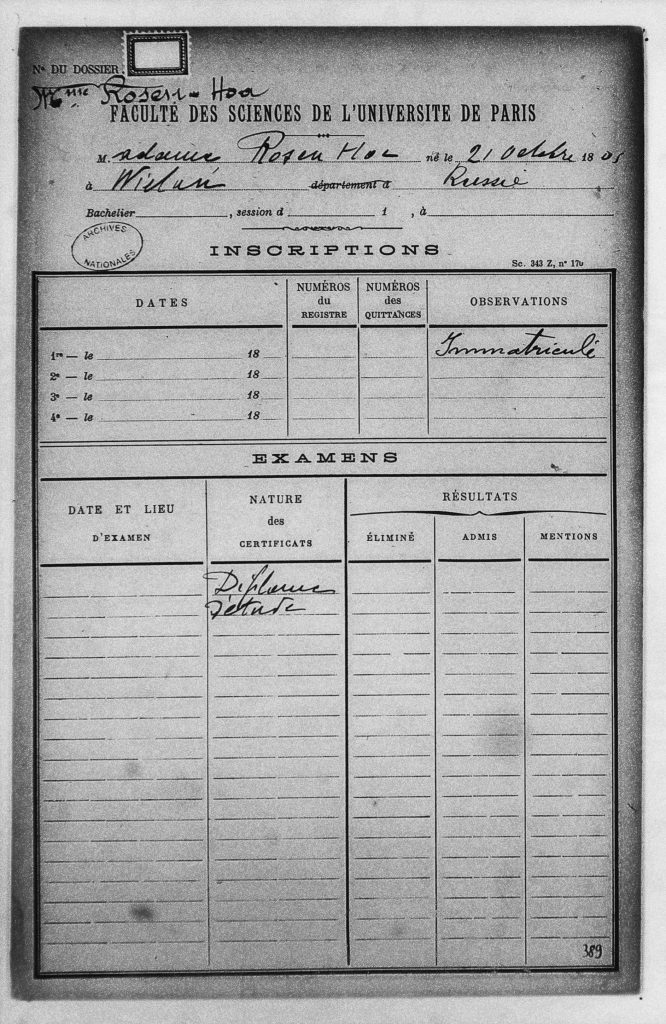 N° DU DOSSIER
Mme Rosen-Hoa
FACULTÉ DES SCIENCES DE L'UNIVERSITE DE PARIS
M. adame Rosen Hoa né le 21 Octobre 18
à département d Russie
Bachelier , session d 1 , à
ARCHIVES
NATIONALES
INSCRIPTIONS
Sc. 343 Z, n° 170
DATES
NUMÉROS
du
REGISTRE
NUMÉROS
des
QUITTANCES
OBSERVATIONS
1re — le 18
Immatriculé
2e — le 18
3e — le 18
4e — le 18
EXAMENS
DATE ET LIEU
D'EXAMEN
NATURE
des
CERTIFICATS
RÉSULTATS
ÉLIMINÉ
ADMIS
MENTIONS
Diplome
d'étude
389